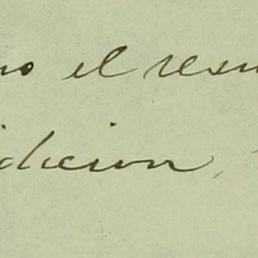 no el resu
dicion,